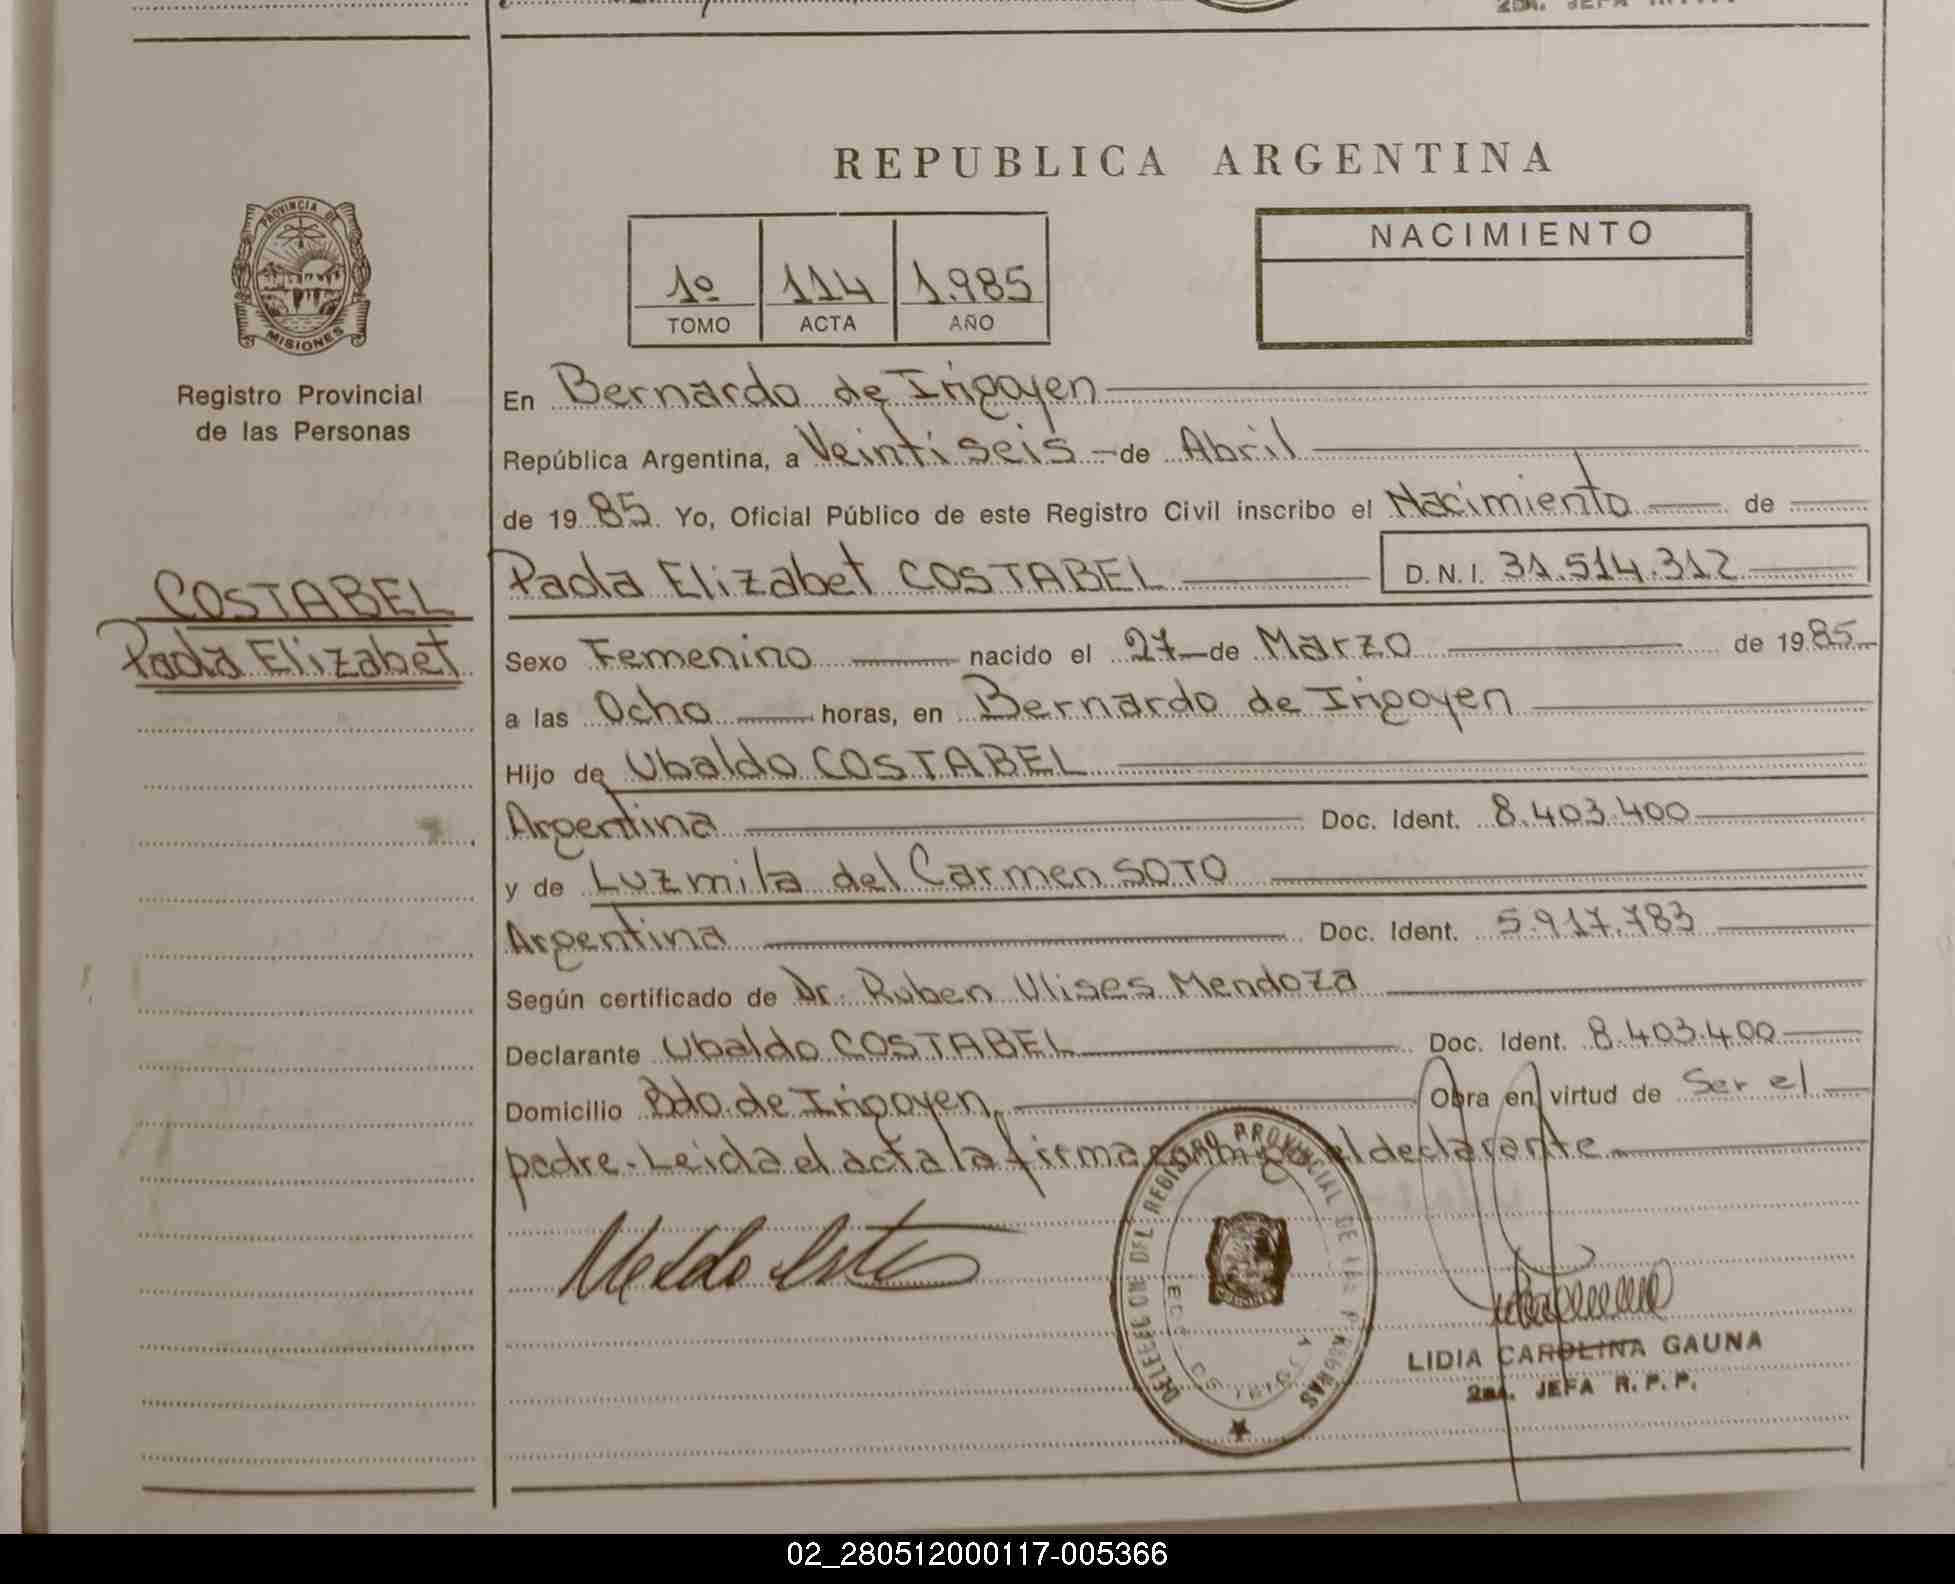 REPUBLICA ARGENTINA
PROVINCIA DE
MISIONES
Registro Provincial
de las Personas
COSTABEL
Paola Elizabet
1º 114 1.985
TOMO ACTA AÑO
NACIMIENTO
En Bernardo de Irigoyen
República Argentina, a Veintiseis de Abril
de 1985. Yo, Oficial Público de este Registro Civil inscribo el Nacimiento de
Paola Elizabet COSTABEL D.N.I. 31.514.312
Sexo Femenino nacido el 27 de Marzo de 1985
a las Ocho horas, en Bernardo de Irigoyen
Hijo de Ubaldo COSTABEL
Argentina Doc. Ident. 8.403.400
y de Luzmila del Carmen SOTO
Argentina Doc. Ident. 5.917.783
Según certificado de Dr. Ruben Ulises Mendoza
Declarante Ubaldo COSTABEL Doc. Ident. 8.403.400
Domicilio Bdo. de Irigoyen, Obra en virtud de Ser el
padre. Leida el acta la firma conmigo el declarante
DELEGACION DEL REGISTRO PROVINCIAL DE LAS PERSONAS
LIDIA CAROLINA GAUNA
2da. JEFA R.P.P.
02_280512000117-005366